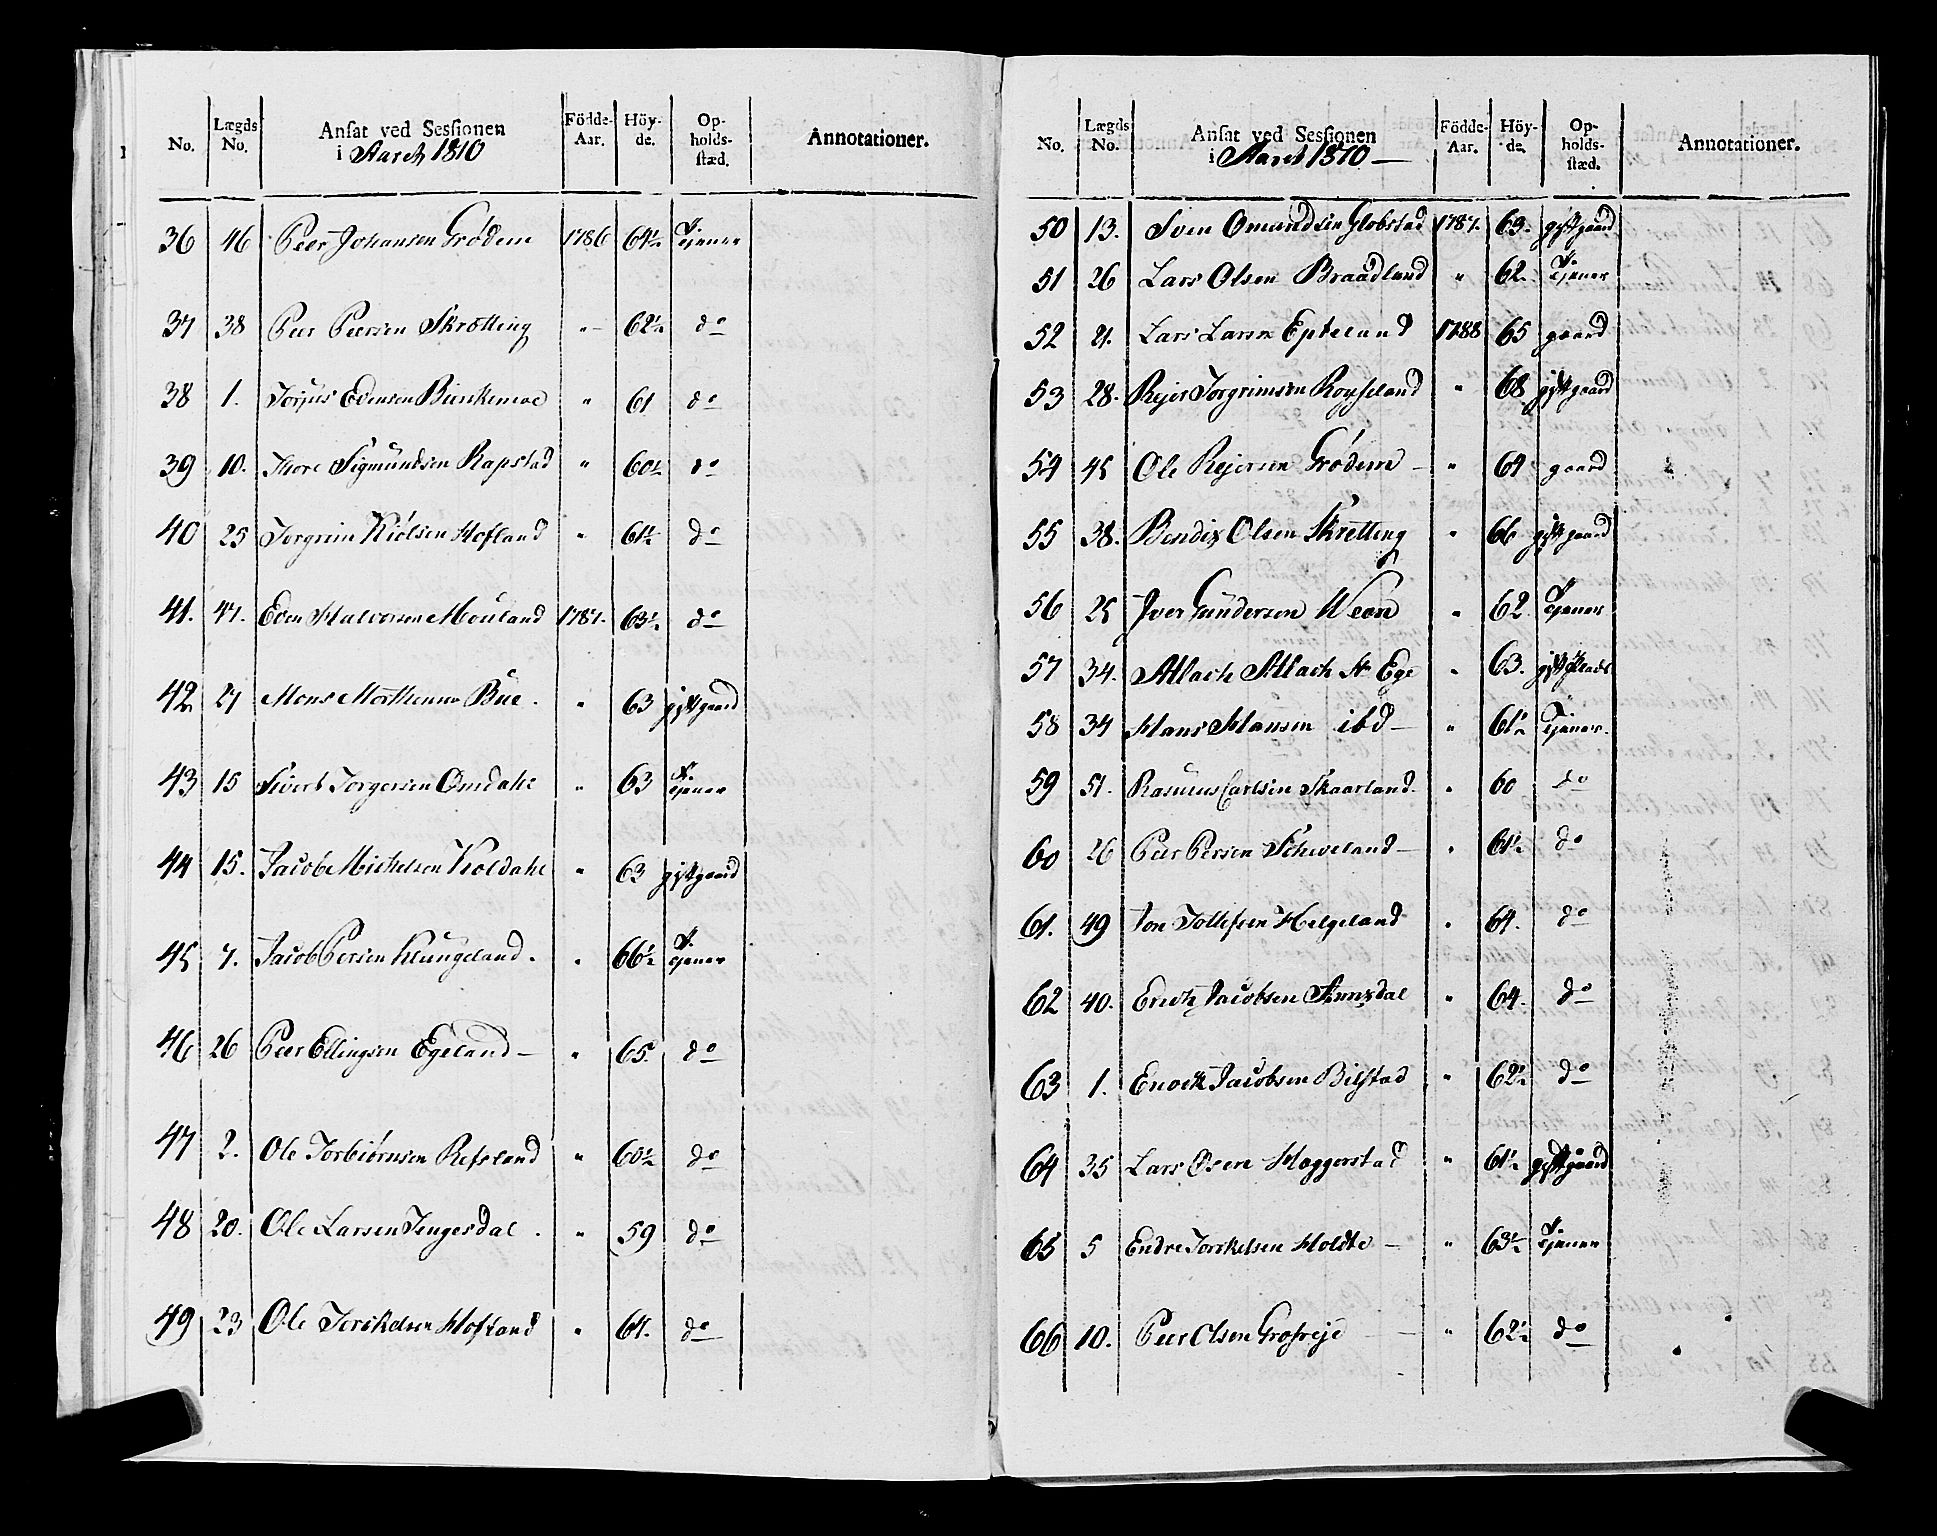 No. Lægds No. Ansat ved Sessionen i Aaret 1810 Födde-Aar. Höy-de. Op-holds-stæd. Annotationer.
36 46 Peer Johansen Grødem 1786 64½ Tjener
37 38 Peer Peersen Skrætting " 62½ do
38 1. Torjus Edensen " 61 do
39 10. Thore Sigmundsen Rapstad " 60½ do
40 25 Torgrim Kiölsen Hofland " 61½ do
41. 47. Even Halvorsen Mouland 1787. 63½ do
42 27 Mons Morthensen Bue . " 63 gift gaard
43 15 Sivert Torgersen Omdahl " 63 Tjener
44 15. Jacob Michelsen Koldahl " 63 gift gaard
45 7. Jacob Persen Klungeland . " 66½ Tjener
46 26 Peer Ellingsen Egeland — " 65. do
47 2. Ole Torbiörnsen Refsland " 60½ do
48 20. Ole Larsen Tengesdal . " 59 do
49 23 Ole Torkelsen Hofland " 64. do
No. Lægds No. Ansat ved Sessionen i Aaret 1810 — Födde-Aar. Höy-de. Op-holds-stæd. Annotationer.
50 13. Sven Omundsen Globstad 1787. 63. gift gaard
51 26 Lars Olsen Braadland " 62. Tjener
52 21. Lars Larsen Epteland 1788 65 gaard
53 28. Rejer Torgrimsen Røysland " 68 gift gaard
54 45 Ole Rejersen Grødem — " 64 gaard
55 38. Bendix Olsen Skretting " 66 gift gaard
56 25 Iver Gundersen " 62. Tjener
57 34. Atlach Atlach Sn Ege " 63. gift Plads
58 34 Hans Hansen ibd — " 61½ Tjener.
59 51. Rasmus Carlsen Skaarland. " 60 do
60 26 Peer Persen Schveland — " 61½ do
61. 49 Ton Tollefsen Helgeland " 64. do
62 40. Jacobsen " 64. do
63 1. Enock Jacobsen Bilstad " 62½ do
64 35 Lars Osen Haggerstad " 61½ gift gaard
65 5 Endre Torkelsen Holdte — " 63½ Tjener
66 10. Peer Olsen — " 62½ do